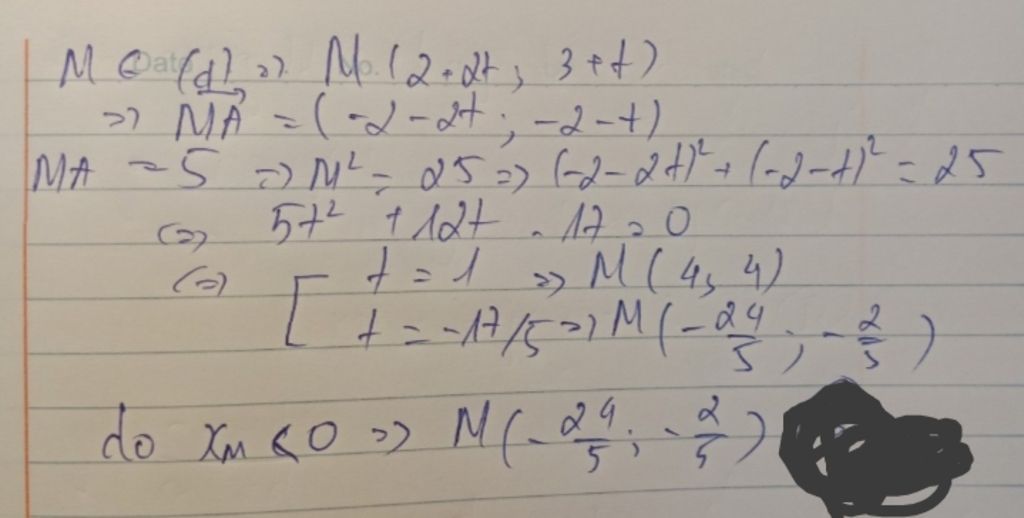 M ∈ (d) => M (2+2t; 3+t)
=> \overrightarrow{MA} = (-2-2t; -2-t)
MA = 5 => M² = 25 => (-2-2t)² + (-2-t)² = 25
<=> 5t² + 12t - 17 = 0
<=> [ t = 1 => M (4; 4)
t = -17/5 => M (-24/5; -2/5)
do x_M < 0 => M (-24/5; -2/5)